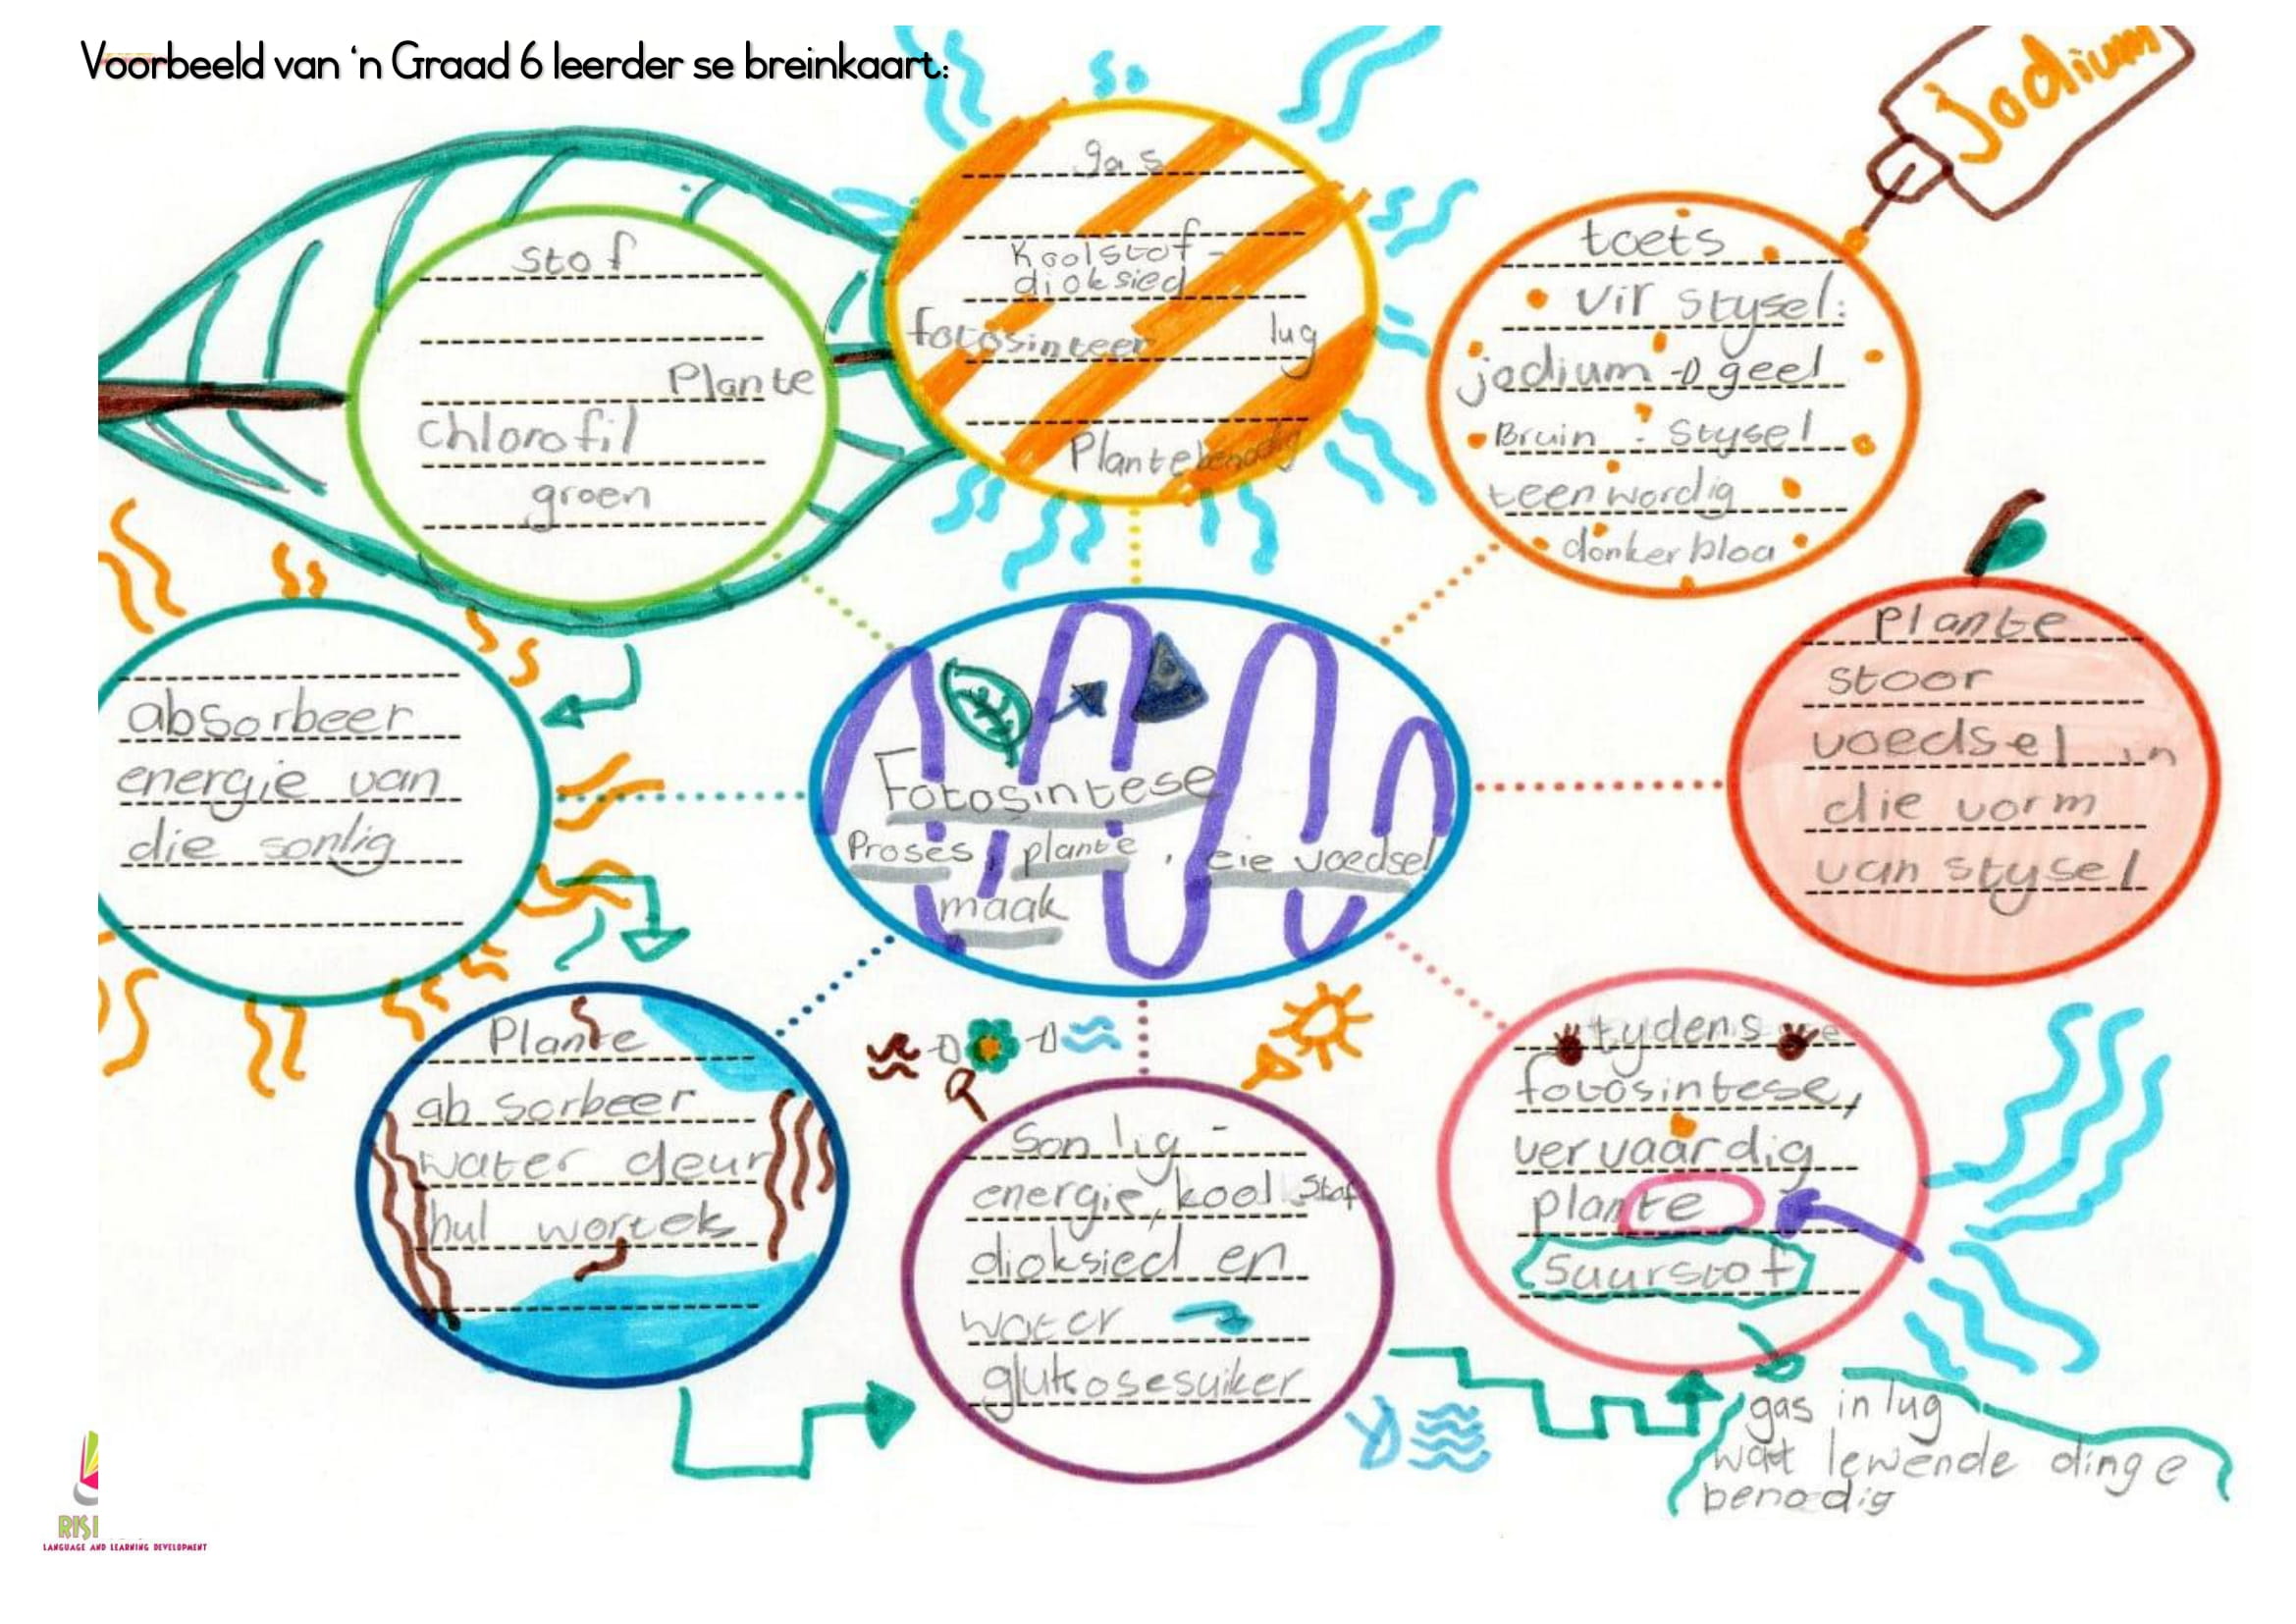 Voorbeeld van 'n Graad 6 leerder se breinkaart:
Jodium
gas
Koolstof-
dioksied
fotosinteer lug
Plante benodig
stof
Plante
chlorofil
groen
toets
vir stysel:
jodium → geel
Bruin : stysel
teenwordig
donker bloa
plante
stoor
voedsel in
die vorm
van stysel
absorbeer
energie van
die sonlig
Fotosintese
Proses, plante, eie voedsel
maak
Plante
absorbeer
water deur
hul wortels
Sonlig-
energie, koolstof
dioksied en
water →
glukosesuiker
tydens
fotosintese,
vervaardig
plante
Suurstof
gas in lug
wat lewende dinge
benodig
RISI
LANGUAGE AND LEARNING DEVELOPMENT